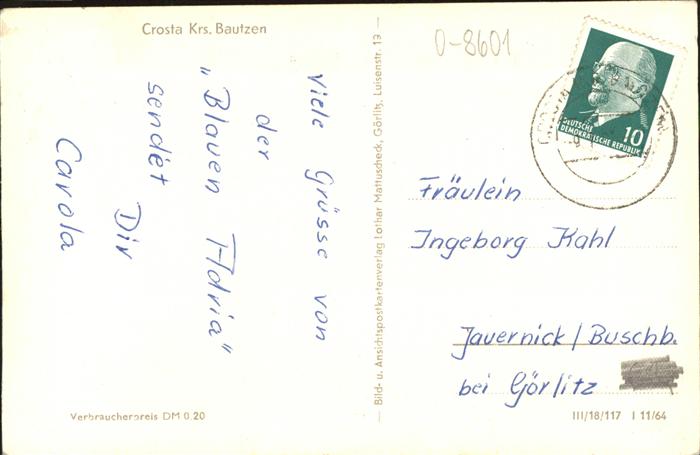 Crosta Krs. Bautzen
Viele Grüsse von
der
„Blauen Adria"
sendet Dir
Carola
Verbraucherpreis DM 0.20
Bild- u. Ansichtspostkartenverlag Lothar Mattuscheck, Görlitz, Luisenstr. 19
0-8601
DEUTSCHE
DEMOKRATISCHE REPUBLIK
10
Fräulein
Ingeborg Kahl
Jauernick/Buschb.
bei Görlitz
III/18/117 I 11/64